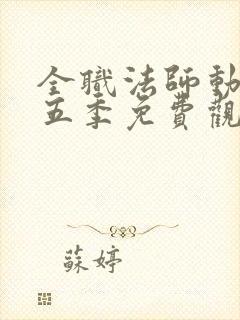 全職法師動
五季免費觀
蘇婷